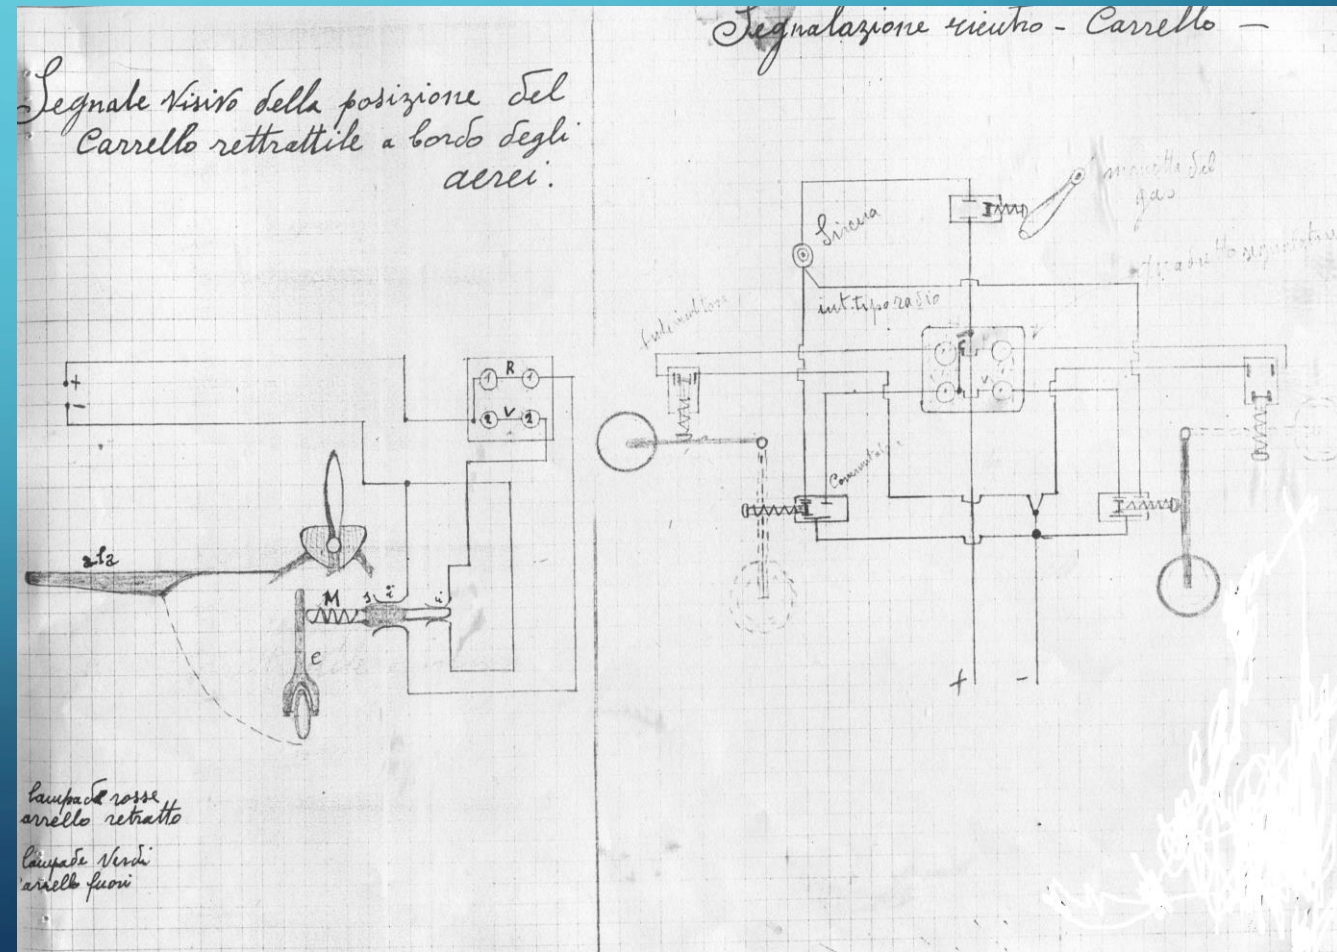 Segnale Visivo della posizione del
Carrello rettrattile a bordo degli
aerei.
+
-
R
1 1
V
2 2
ala
M
e
lampade rosse
arrello retratto
lampade Verdi
arrello fuori
Segnalazione rientro - Carrello -
manetta del
gas
Sirena
int. tipo radio
+ -